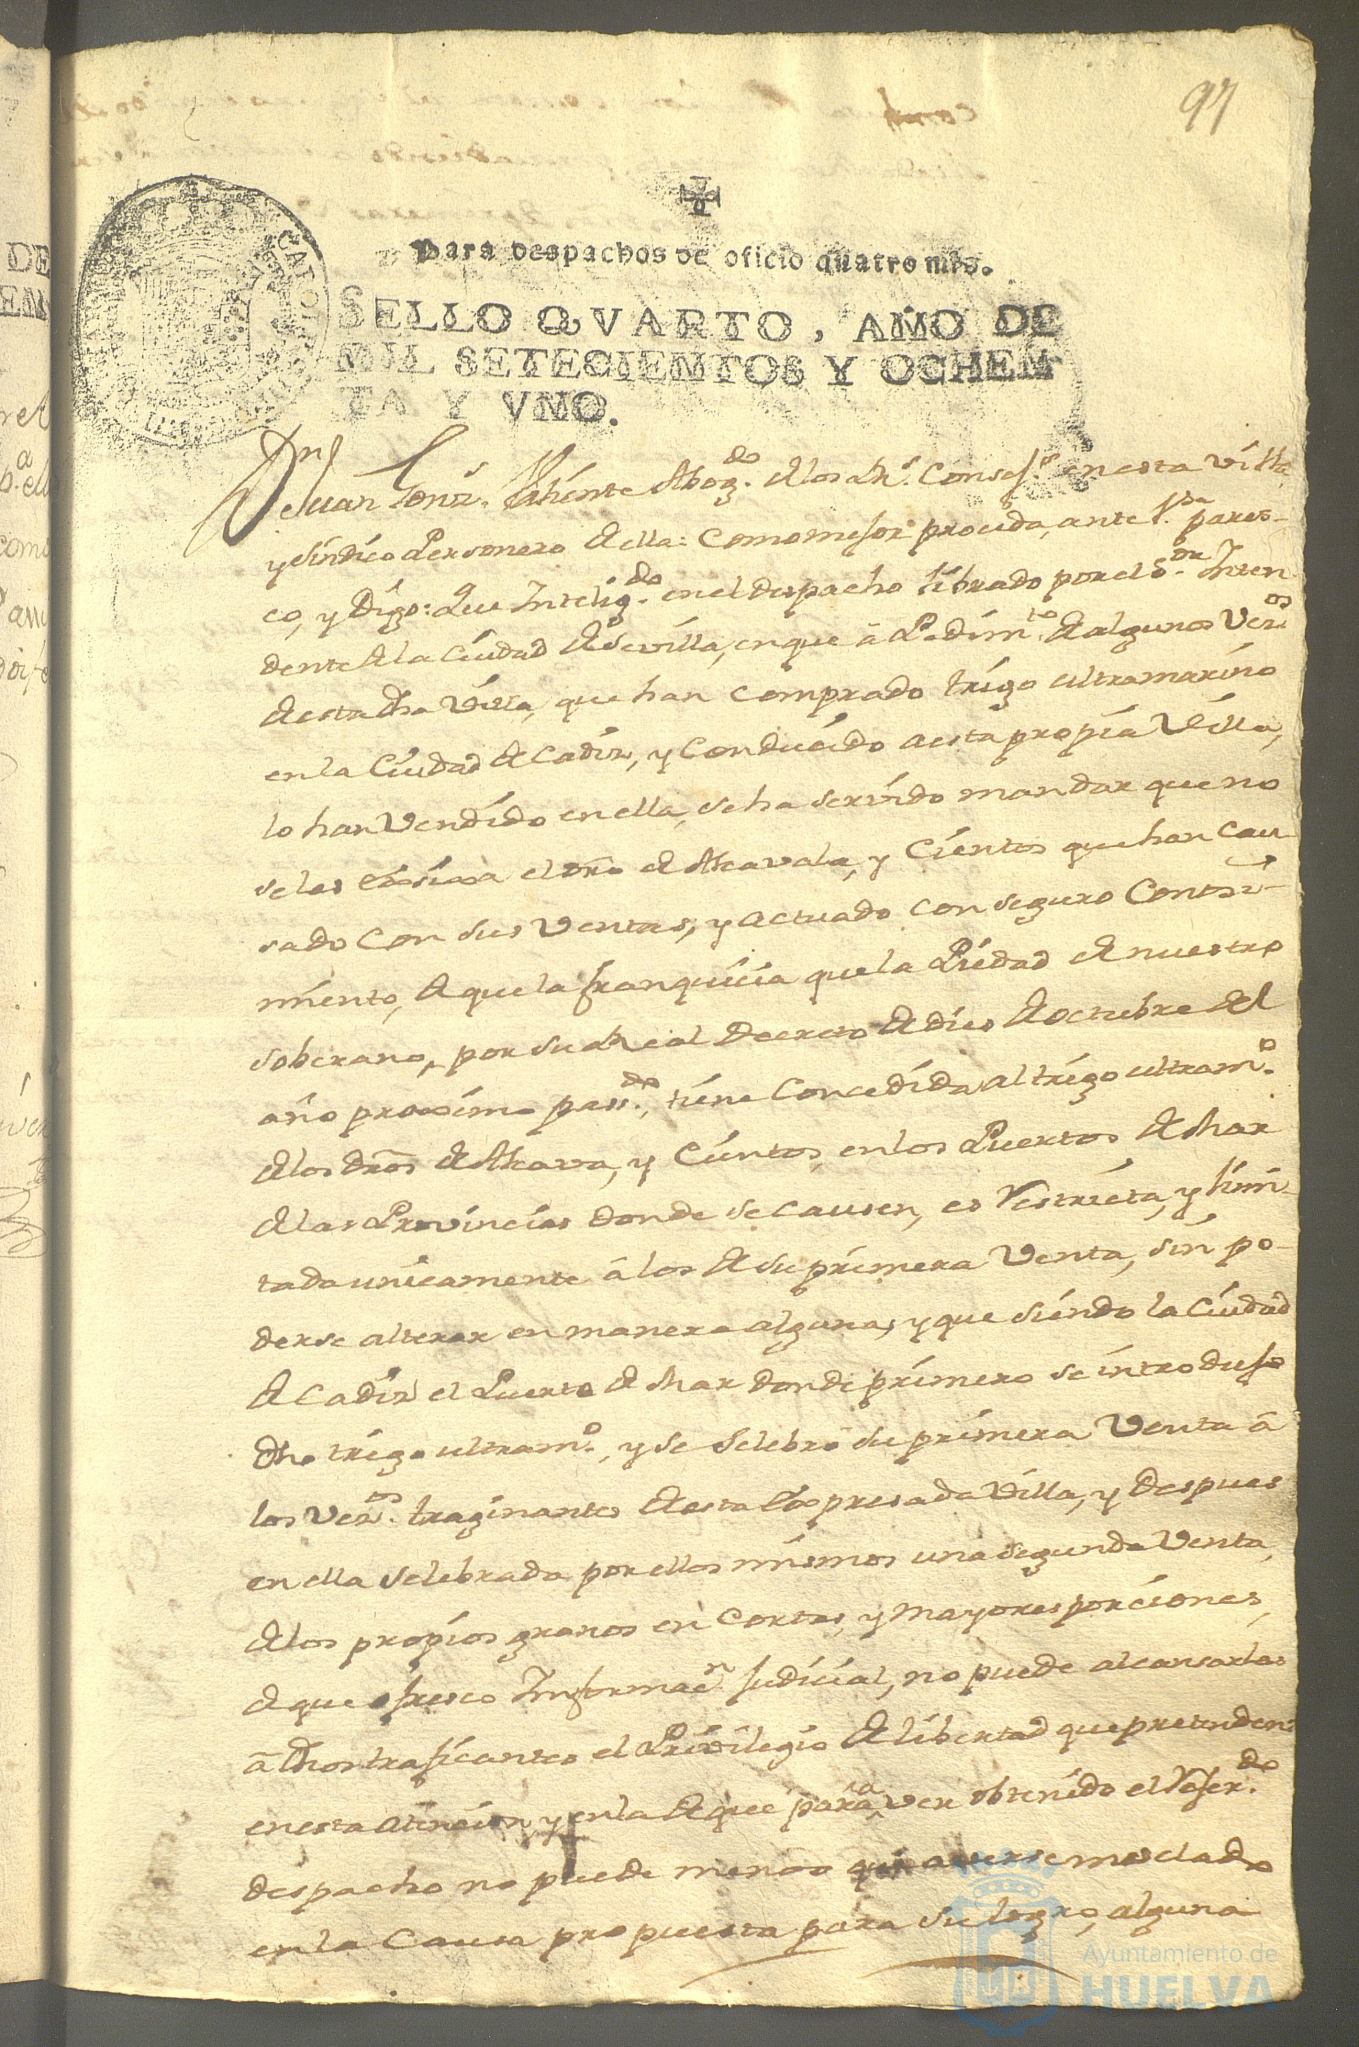 97
Para despachos de oficio quatro mrs.
SELLO QVARTO, AÑO DE
MIL SETECIENTOS Y OCHEN
TA Y VNO.
Dn Juan Valiente Abogdo. de los Rs. Consejs. en esta villa
y sindico Personero de ella: Como mejor proceda, ante V. pares-
co, y Digo: Que Inteligdo. en el despacho librado por el Sor. Inten
dente de la Ciudad de Sevilla, en que â Pedimto. de algunos Vezos
de esta dha Villa, que han comprado trigo ultramarino
en la Ciudad de Cadiz, y Conducido a esta propia Villa,
lo han Vendido en ella, se ha servido mandar que no
se les exsixa el dro de Alcavala, y Cientos que han Cau
sado con sus Ventas, y actuado con seguro Conosi-
miento, de que la franquicia que la Piedad de nuestro
soberano, por su Real Decreto de dies de octubre del
año proximo passdo., tiene Concedida al trigo ultramo.
de los dros de Alcava, y Cientos, en los Puertos de Mar
de las Provincias donde se causen, es Restricta, y limi-
tada unicamente â los de su primera Venta, sin po-
derse alterar en manera alguna, y que siendo la Ciudad
de Cadiz el Puerto de Mar donde primero se introdujo
dho trigo ultramo., y se selebró su primera Venta â
los Vezos. traginantes de esta expresada Villa, y despues
en ella selebrada por ellos mismos una segunda Venta,
de los propios granos en Cortas, y mayores porciones,
de que ofresco Informacn. Judicial, no puede alcansarles
â dhos traficantes el Privilegio de libertad que pretenden:
en esta atencion, y en la de que para aver obtenido el Referdo.
despacho no puede menos que averse mesclado
en la Causa propuesta para su logro, alguna
Ayuntamiento de
HUELVA